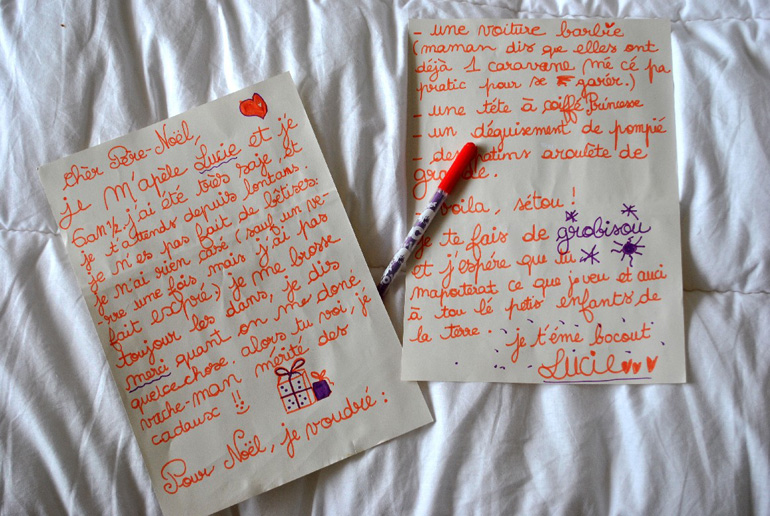 Cher Père-Noël,
je m'apèle Lucie et je
6am½ j'ai été très saje, et
je t'attends depuis lontams.
je n'es pas fait de bêtises.
je n'ai rien caré (sauf un ve-
rre une fois mais j'ai pas
fait exprè) je me brosse
toujour les dans, je dis
merci quant on me done
quelcechose. alors tu voi, je
vache-man mérité des
cadaux !!
Pour Noël, je voudré :
- une voiture barbie
(maman dis que elles ont
déjà 1 caravane, mé cé pa
pratic pour se garér.)
- une tête à coiffé Prinesse
- un déguisement de pompié
- de patins aroulète de
gra e.
- voila, sétou !
je te fais de grobisou
et j'espére que tu
mapoterat ce que jveu et auci
à tou lé petis enfants de
la terre.
je t'éme bocout
Lucie